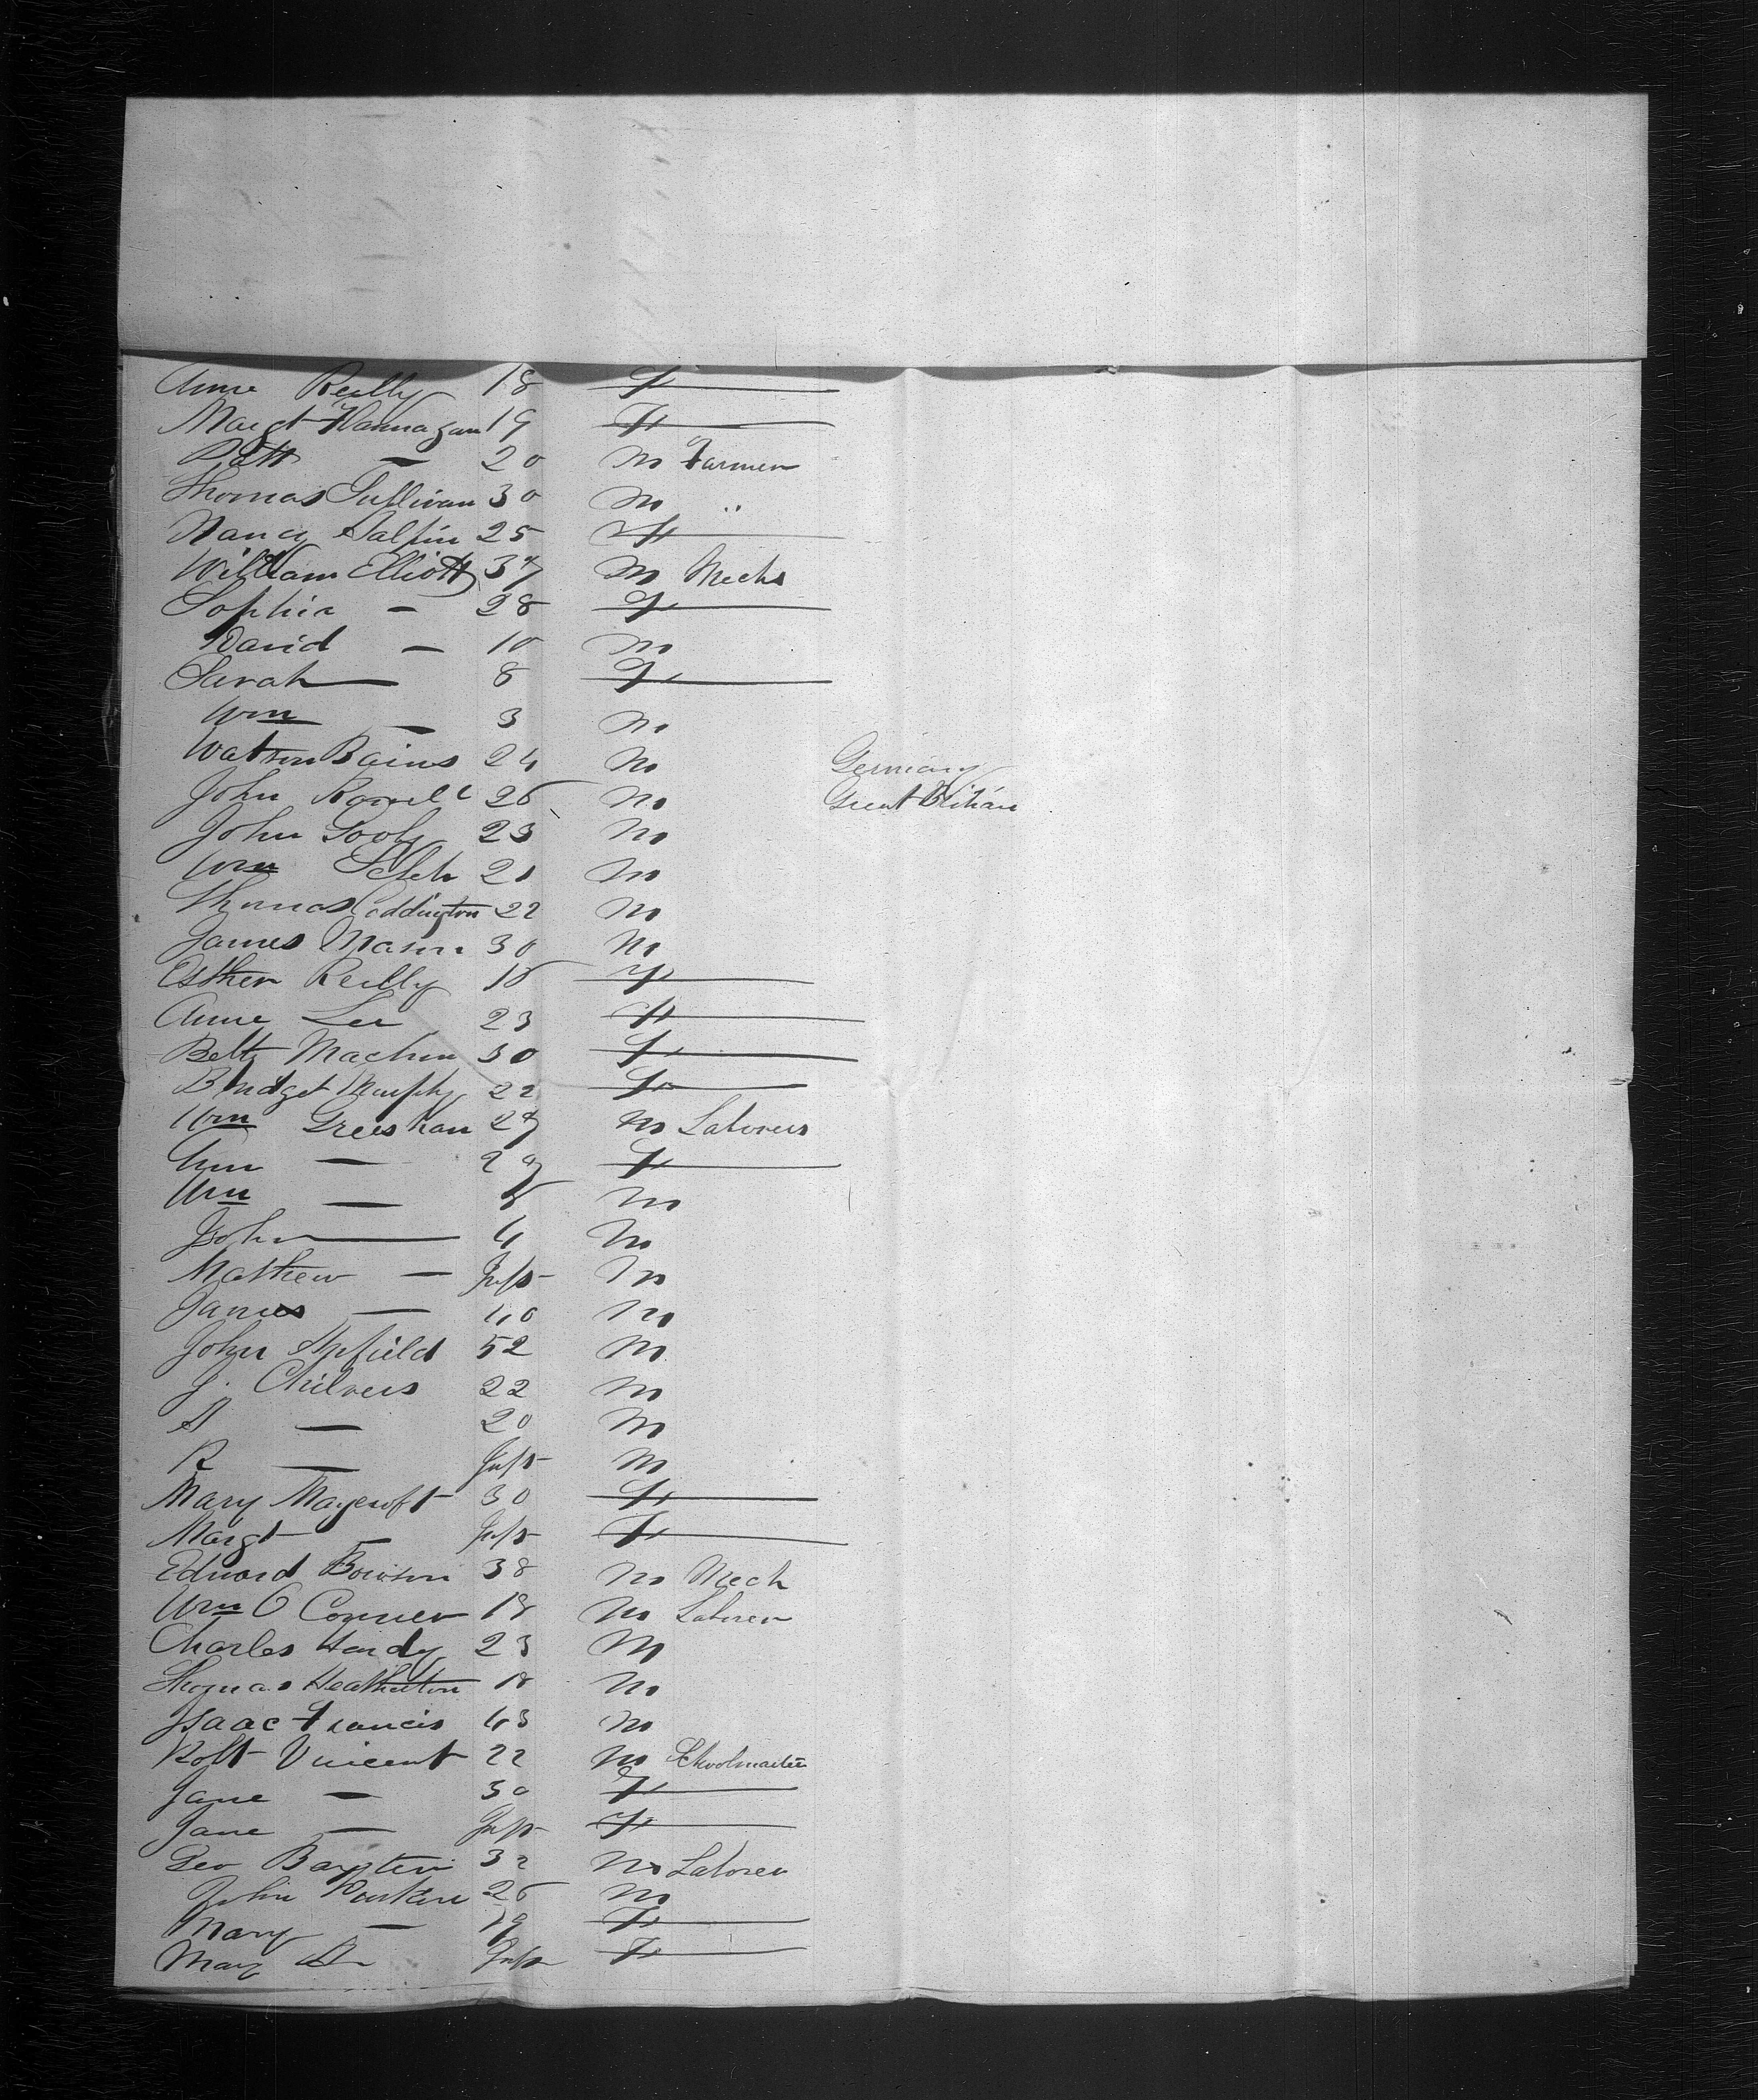 Anne Reilly 18 F
Margt Flannagan 19 F
Patk — 20 M Farmer
Thomas Sullivan 30 M "
Nancy Halpin 25 F
William Elliott 37 M Mechs
Sophia — 28 F
David — 10 M
Sarah — 8 F
Wm — 3 M
Watson Bains 24 M Germany
John 26 M Great Britain
John 23 M
Wm 21 M
Thomas Coddington 22 M
James Mason 30 M
Esther Reilly 18 F
Anne Lee 23 F
Betty Machin 30 F
Bridget Murphy 22 F
Wm 27 M Laborers
Ann — 27 F
Wm — 5 M
John — 4 M
Mathew — Inft M
James — 40 M
John 52 M
J. Chilvers 22 M
A — 20 M
R — Inft M
Mary Maycroft 30 F
Margt — Inft F
Edward 38 M Mech
Wm O Conner 18 M Laborer
Charles Hardy 23 M
Thomas Heatherton 18 M
Isaac Francis 43 M
Robt Vincent 22 M Schoolmaster
Jane — 30 F
Jane — Inft F
Geo 32 M Laborer
John 26 M
Mary — 19 F
Mary A — Inft F